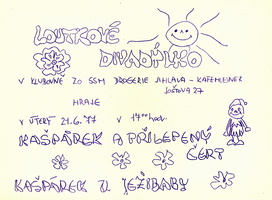 LOUTKOVÉ
DIVADÝLKO
V KLUBOVNĚ ZO SSM DROGERIE JIHLAVA - KAFEMLEJNEK
JOŠTOVA 27
HRAJE
V ÚTERÝ 21.6.77 V 14⁰⁰ hod.
KAŠPÁREK A PŘILEPENÝ
ČERT
KAŠPÁREK U JEŽIBABY